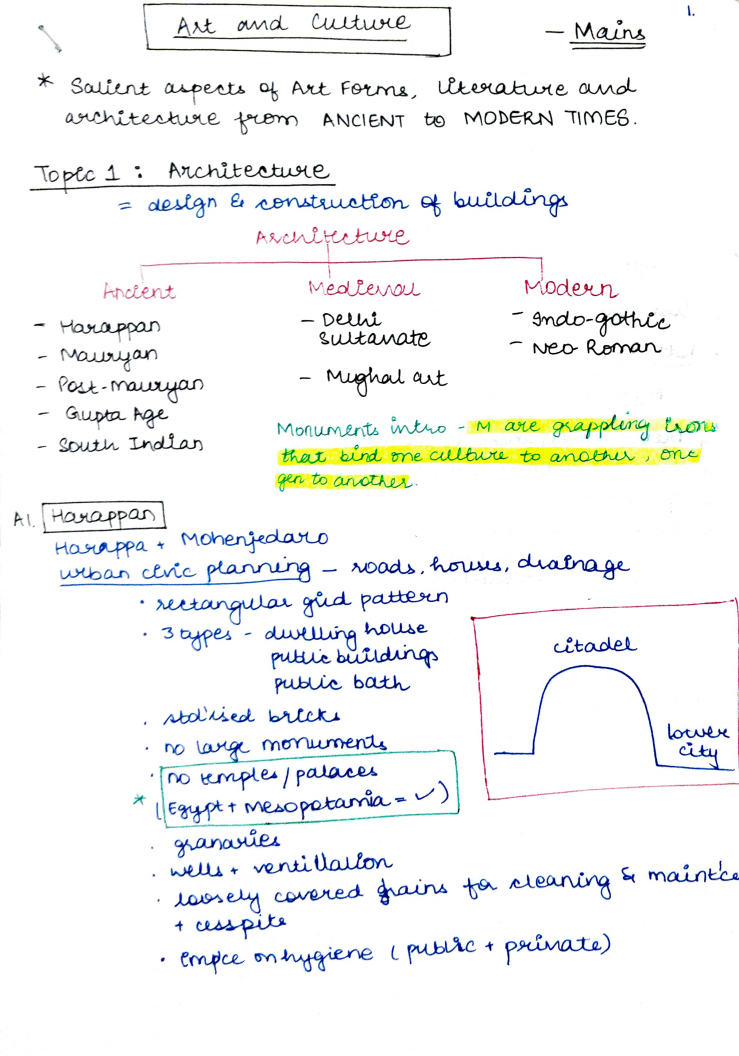 1.
Art and Culture
- Mains
* Salient aspects of Art Forms, literature and
architecture from ANCIENT to MODERN TIMES.
Topic 1 : Architecture
= design & construction of buildings
Architecture
Ancient
- Harappan
- Mauryan
- Post-mauryan
- Gupta Age
- South Indian
Medieval
- Delhi
Sultanate
- Mughal art
Modern
- Indo-gothic
- Neo-Roman
Monuments intro - M are grappling irons
that bind one culture to another, one
gen to another.
A1. Harappan
Harappa + Mohenjedaro
urban civic planning - roads, houses, drainage
· rectangular grid pattern
· 3 types - dwelling house
public buildings
public bath
· std'ised bricks
· no large monuments
· no temples/palaces
* (Egypt + Mesopotamia = ✓)
· granaries
· wells + ventillation
· loosely covered grains for cleaning & maint'ce
+ cesspits
· empce on hygiene (public + private)
citadel
lower
city